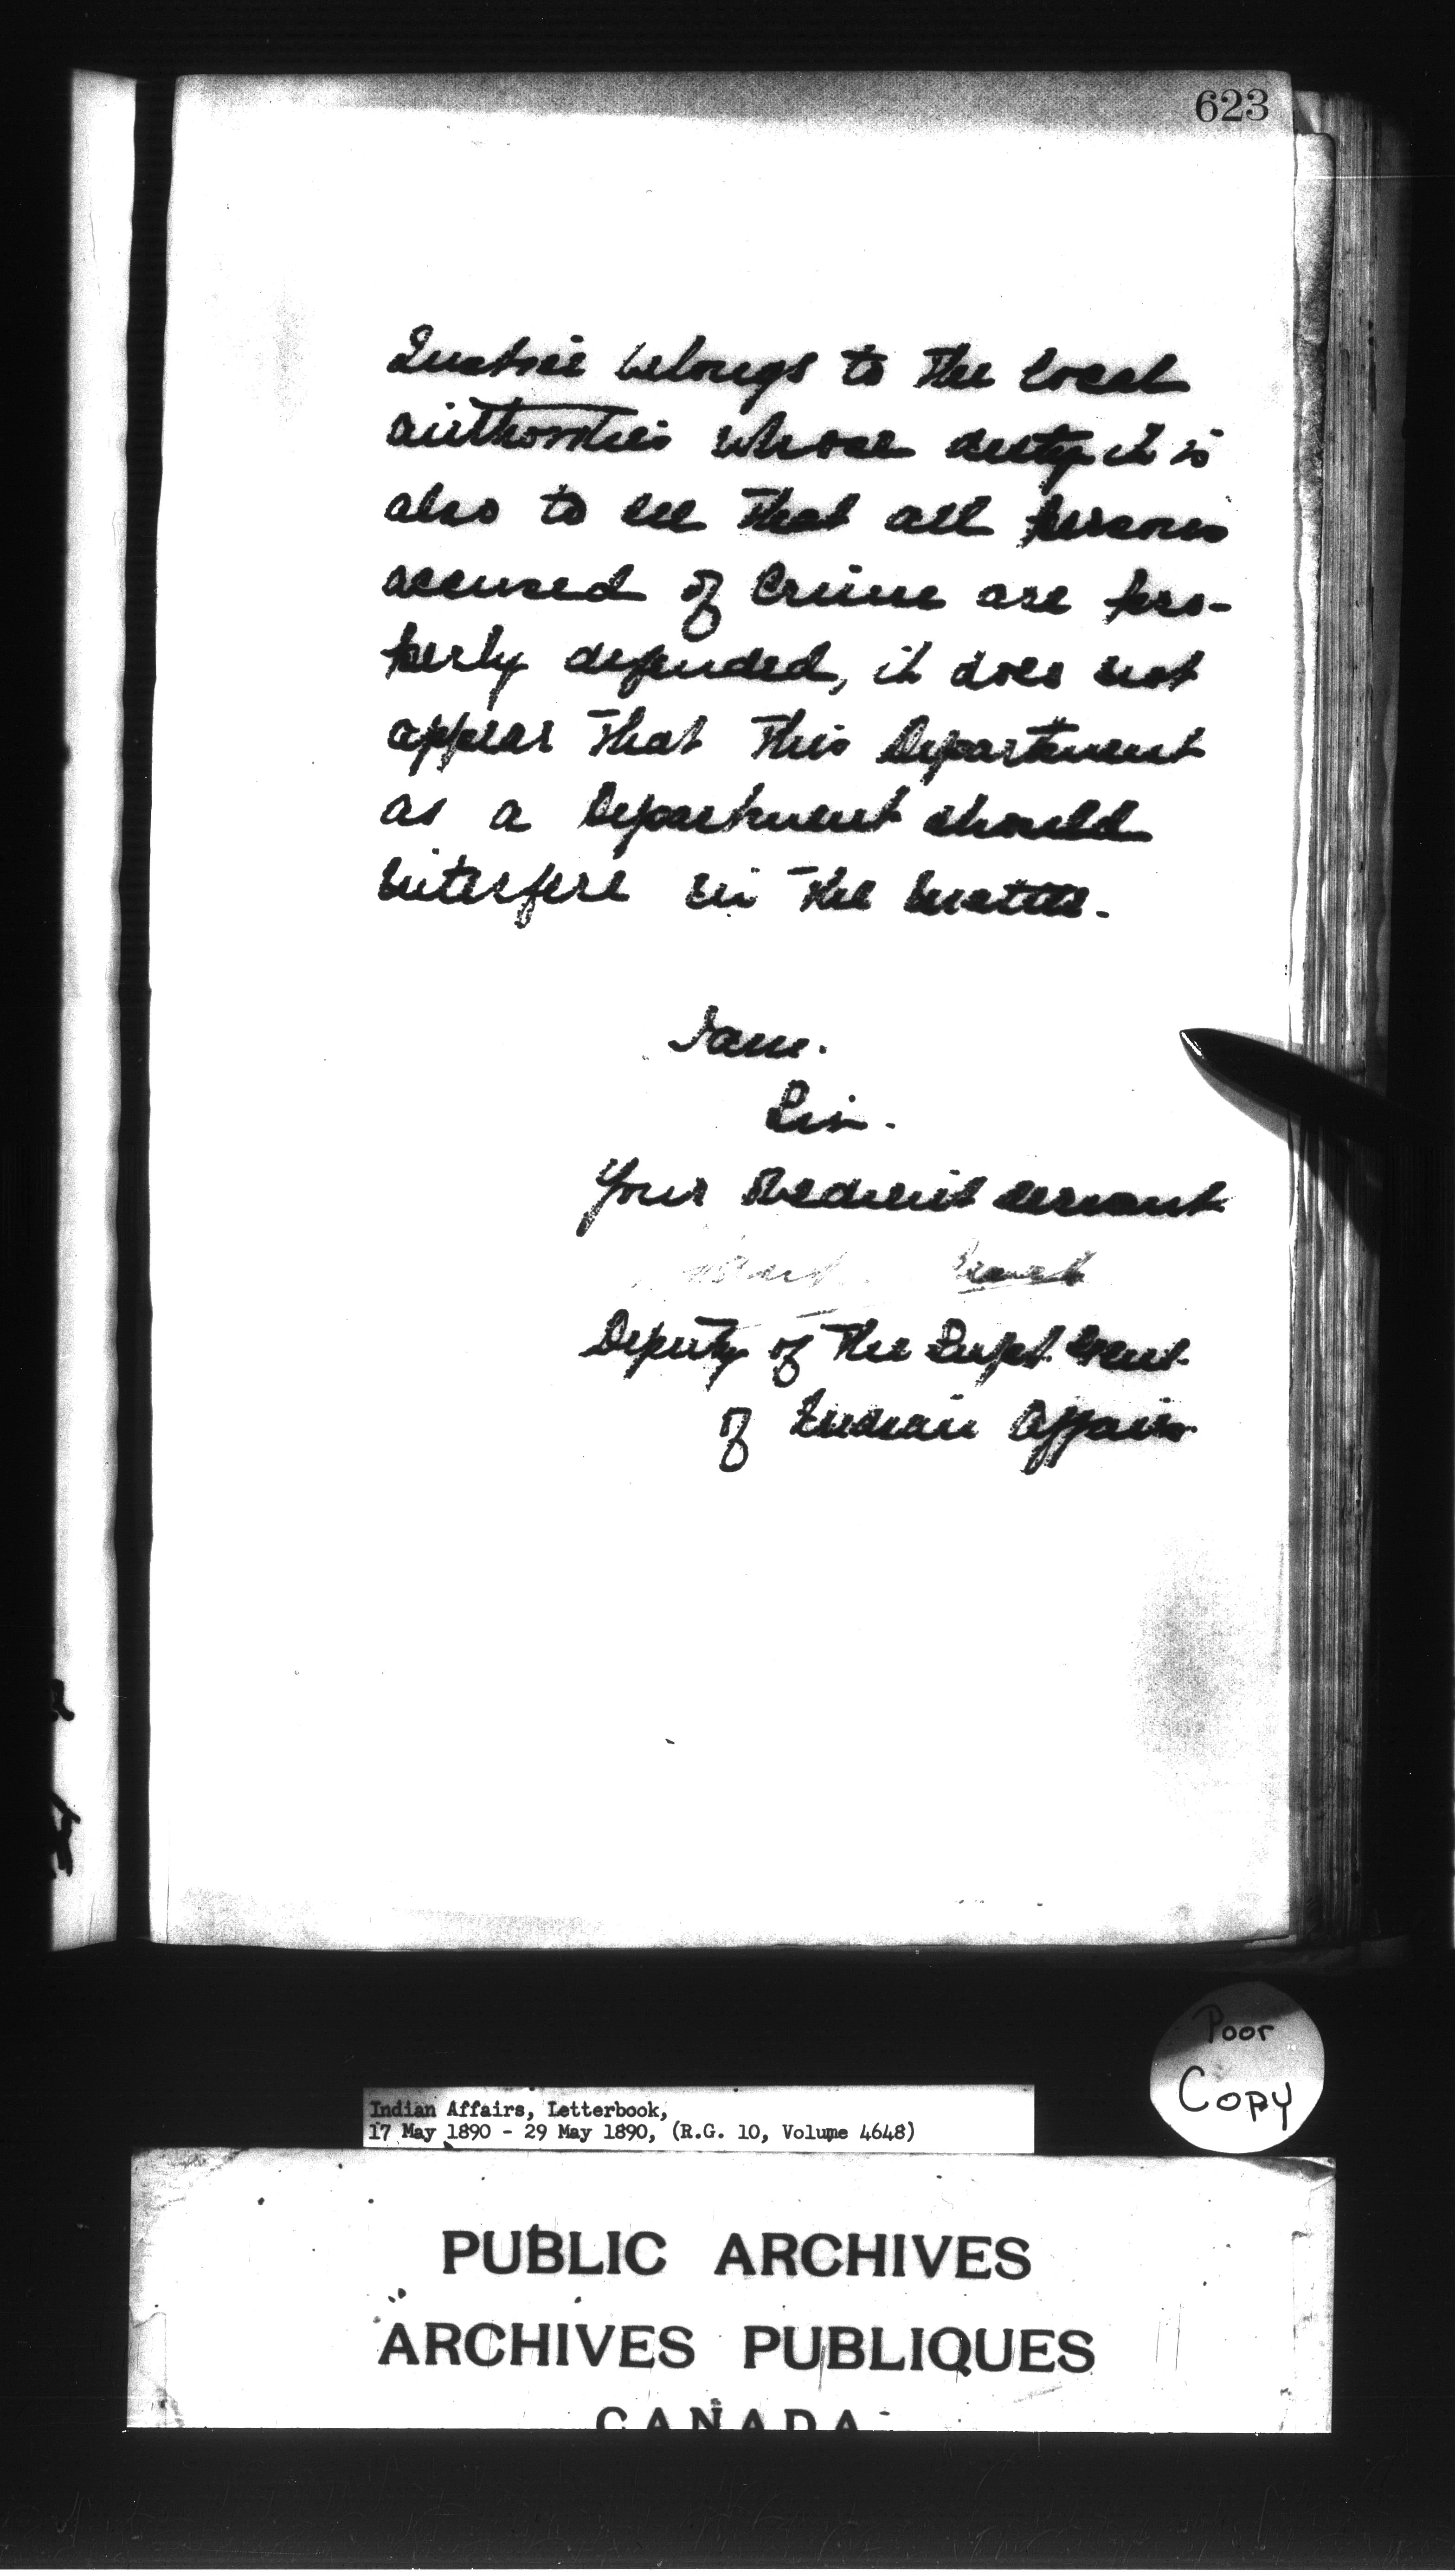 623
Justice belongs to the local
authorities whose duty it is
also to see that all persons
accused of Crime are pro-
perly defended, it does not
appear that this Department
as a Department should
interfere in the matter.
I am.
Sir.
Your obedient servant
Deputy of the Supt. Genl.
of Indian Affairs
Poor
Copy
Indian Affairs, Letterbook,
17 May 1890 - 29 May 1890, (R.G. 10, Volume 4648)
PUBLIC ARCHIVES
ARCHIVES PUBLIQUES
CANADA